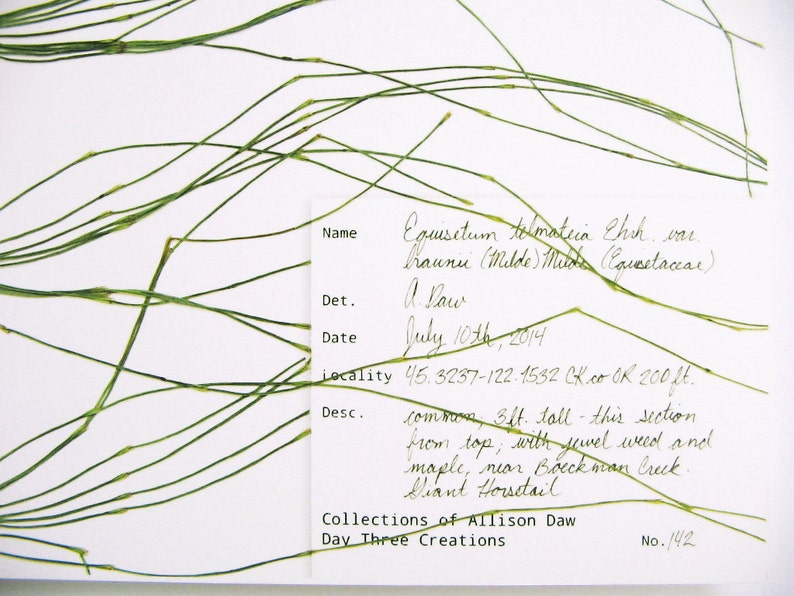 Name Equisetum telmateia Ehrh. var.
braunii (Milde) Milde (Equisetaceae)
Det. A. Daw
Date July 10th, 2014
Locality 45.3237-122.1532 CK co OR 200ft.
Desc. common, 3ft. tall - this section
from top; with jewel weed and
maple, near Boeckman Creek.
Giant Horsetail
Collections of Allison Daw
Day Three Creations
No. 142